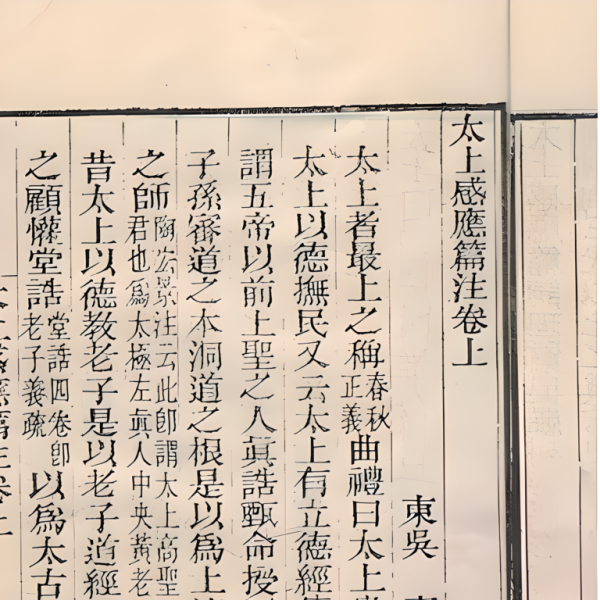 太上感應篇注卷上
東吳
太上者最上之稱春秋正義曲禮曰太上
太上以德撫民又云太上有立德經
謂五帝以前上聖之人眞誥甄命授
子孫審道之本洞道之根是以爲上
之師陶宏景注云此卽謂太上高聖君也爲太極左眞人中央黃老
昔太上以德教老子是以老子道經
之顧懽堂誥堂誥四卷卽老子義疏以爲太古